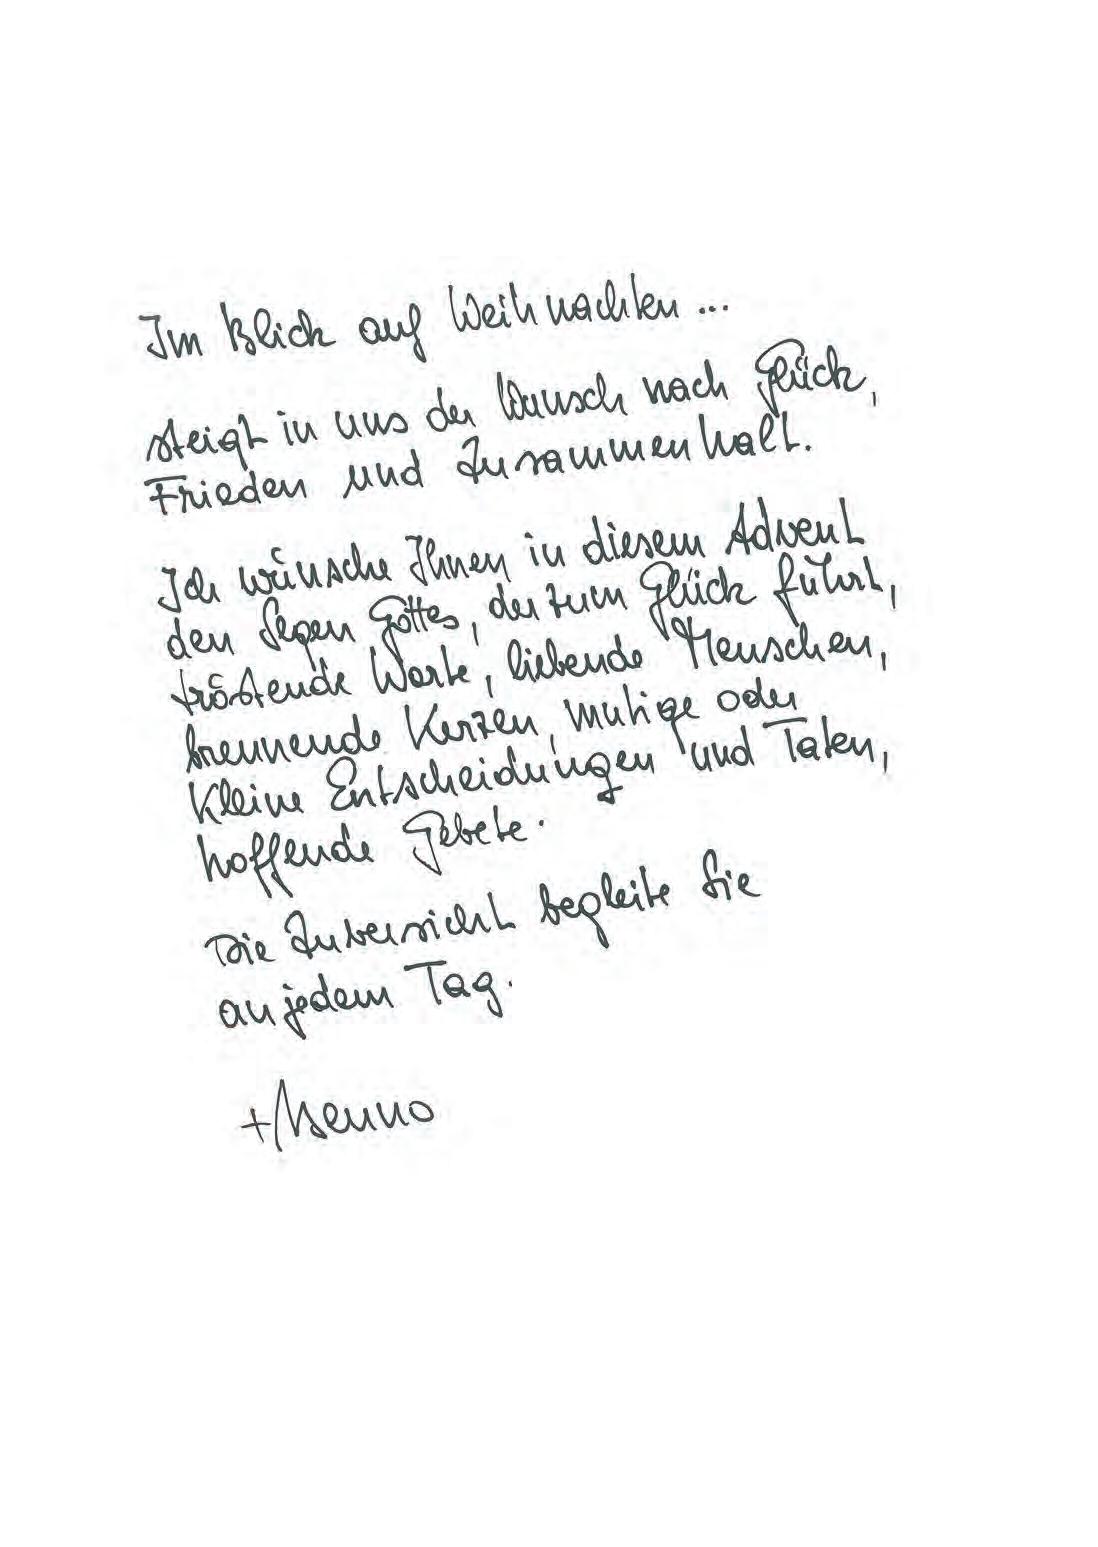 Im Blick auf Weihnachten ...
steigt in uns der Wunsch nach Glück,
Frieden und Zusammenhalt.
Ich wünsche Ihnen in diesem Advent
den Segen Gottes, der zum Glück führt,
tröstende Worte, liebende Menschen,
brennende Kerzen, mutige oder
kleine Entscheidungen und Taten,
hoffende Gebete.
Die Zuversicht begleite Sie
an jedem Tag.
+Benno